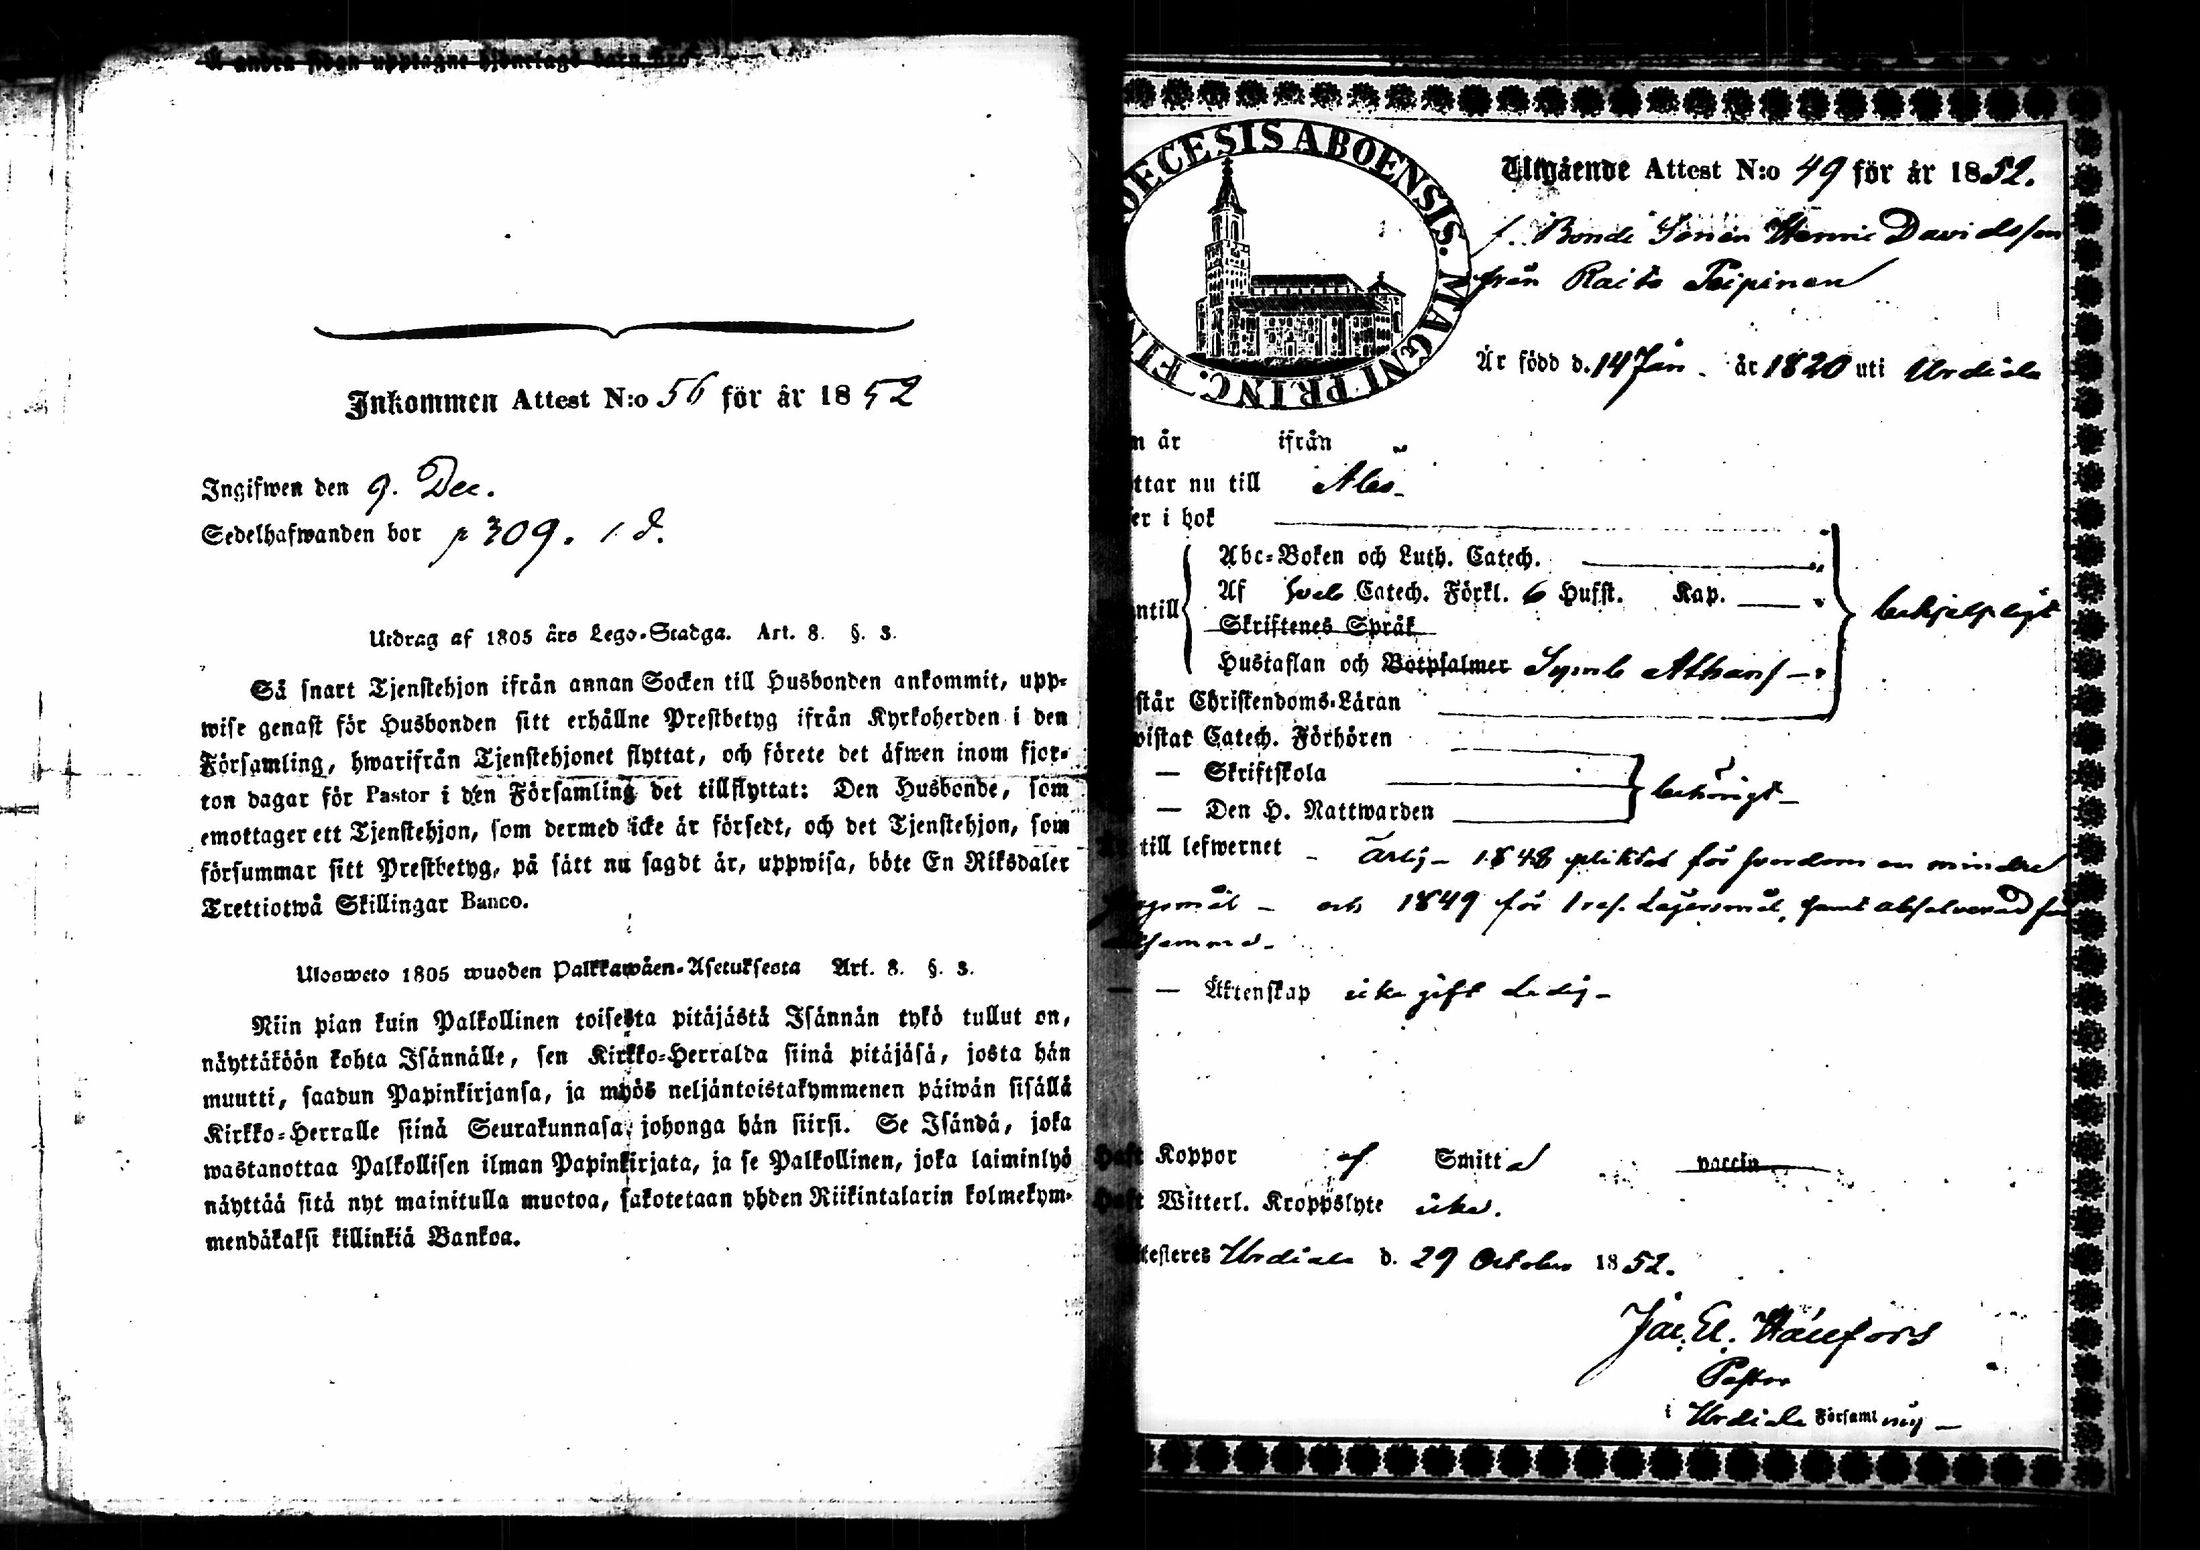 Å andra sidan upptagne hjonelags barn äro
Inkommen Attest N:o 56 för år 1852
Ingifwen den 9. Dec.
Sedelhafwanden bor p 309. 1 d.
Utdrag af 1805 års Lego-Stadga. Art. 8. §. 3.
Så snart Tjenstehjon ifrån annan Socken till Husbonden ankommit, upp-
wise genast för Husbonden sitt erhållne Prestbetyg ifrån Kyrkoherden i den
Församling, hwarifrån Tjenstehjonet flyttat, och förete det äfwen inom fjor-
ton dagar för Pastor i den Församling det tillflyttat: Den Husbonde, som
emottager ett Tjenstehjon, som dermed icke är försedt, och det Tjenstehjon, som
försummar sitt Prestbetyg, på sätt nu sagdt är, uppwisa, böte En Riksdaler
Trettiotwå Skillingar Banco.
Ulosweto 1805 wuoden Palkkawäen-Asetuksesta Art. 8. §. 3.
Niin pian kuin Palkollinen toisesta pitäjästä Isännän tykö tullut on,
näyttäköön kohta Isännälle, sen Kirkko-Herralda siinä pitäjäsä, josta hän
muutti, saadun Papinkirjansa, ja myös neljäntoistakymmenen päiwän sisällä
Kirkko-Herralle siinä Seurakunnasa, johonga hän siirsi. Se Isändä, joka
wastanottaa Palkollisen ilman Papinkirjata, ja se Palkollinen, joka laiminlyö
näyttää sitä nyt mainitulla muotoa, sakotetaan yhden Riikintalarin kolmekym-
mendäkaksi killinkiä Bankoa.
DIOECESIS ABOENSIS. MAGNI PRINC. FIN
Utgående Attest N:o 49 för år 1852.
f. Bonde Sonen Henric Davidsson
från Raito Peipinen
Är född d. 14 Jan. år 1820 uti Urdiala
n år ifrån
ttar nu till Åbo
er i bok
Abc-Boken och Luth. Catech.
Af Sveb Catech. Förkl. 6 Hufst. Kap.
ntill behjelpligt
Skriftenes Språk
Hustaflan och Botpsalmer Symb Athanas
står Christendoms-Läran
vistat Catech. Förhören
— Skriftskola
behörigt
— Den H. Nattwarden
till lefwernet ärlig 1848 pliktat för hordom en mindre
och 1849 för 1 res. Lägersmål, samt absolverad för
— — Äktenskap icke gift Ledig
Haft Koppor af Smitta vaccin
Haft Witterl. Kroppslyte icke.
ttesteres Urdiala d. 29 October 1852.
Jac. El. Hällfors
Pastor
i Urdiala Församling